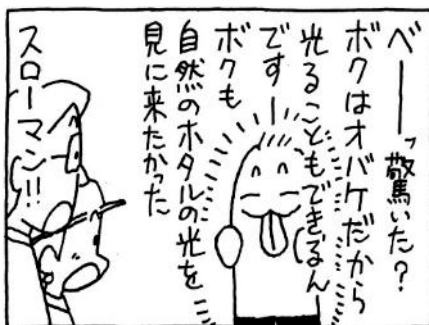 べーーッ驚いた？
ボクはオバケだから
光ることもできるん
ですー
ボクも
自然のホタルの光を
見に来たかった
スローマン!!